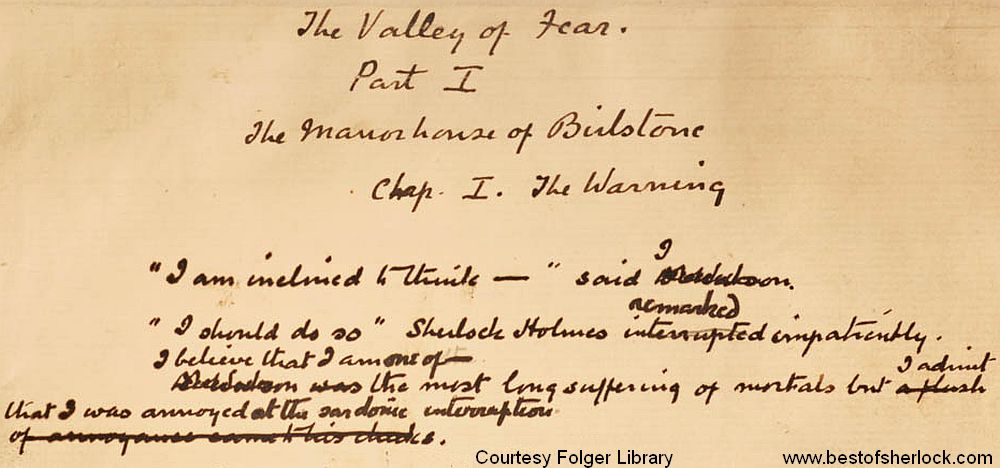 The Valley of Fear.
Part I
The Manor house of Birlstone
Chap. I. The Warning
I
"I am inclined to think — " said
remarked
"I should do so" Sherlock Holmes interrupted impatiently.
I believe that I am one of I admit
was the most long suffering of mortals but a flush
that I was annoyed at the sardonic interruption.
of annoyance came to his cheeks.
Courtesy Folger Library www.bestofsherlock.com